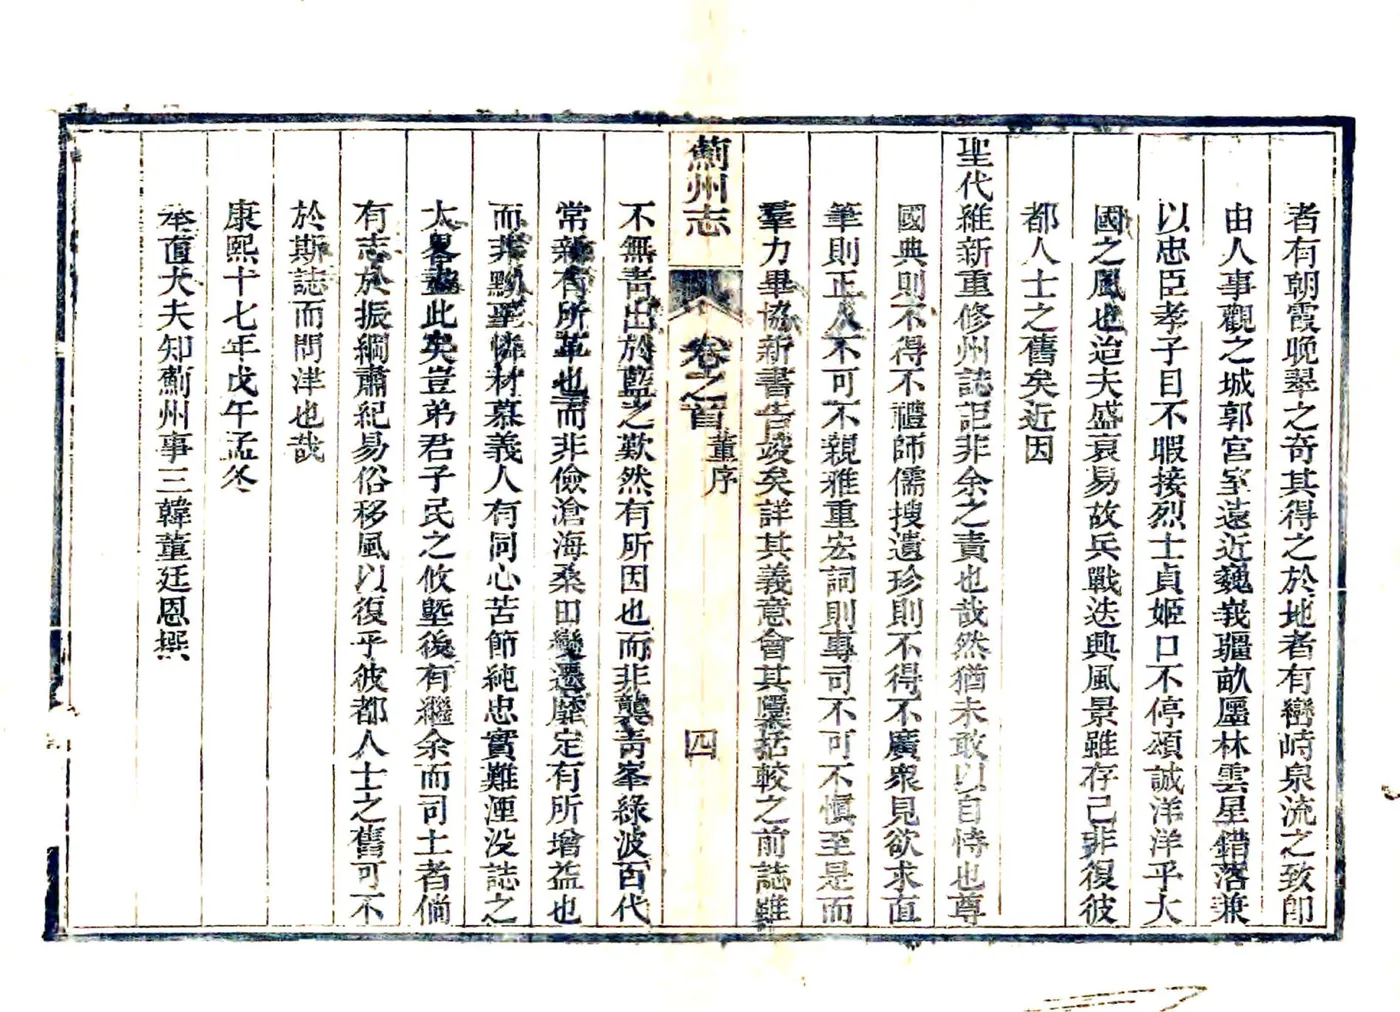 者有朝霞晚翠之奇其得之於地者有巒峙泉流之致卽
由人事觀之城郭宮室遠近巍峩疆畝廛林雲星錯落兼
以忠臣孝子目不暇接烈士貞姬口不停頌誠洋洋乎大
國之風也迨夫盛衰易故兵戰迭興風景雖存已非復彼
都人士之舊矣近因
聖代維新重修州誌記非余之責也哉然猶未敢以自恃也尊
國典則不得不禮師儒搜遺珍則不得不廣衆見欲求直
筆則正人不可不親雅重宏詞則專司不可不慎至是而
羣力畢協新書告竣矣詳其義意會其隱括較之前誌雖
薊州志 卷之首 董序 四
不無靑出於藍之歎然有所因也而非襲靑峯綠波百代
常新有所革也而非儉滄海桑田變遷靡定有所增益也
而非黝堊憐材慕義人有同心苦節純忠實難湮没誌之
大畧盡此矣豈弟君子民之攸塈後有繼余而司土者倘
有志於振綱肅紀易俗移風以復乎彼都人士之舊可不
於斯誌而問津也哉
康熙十七年戊午孟冬
奉直大夫知薊州事三韓董廷恩撰